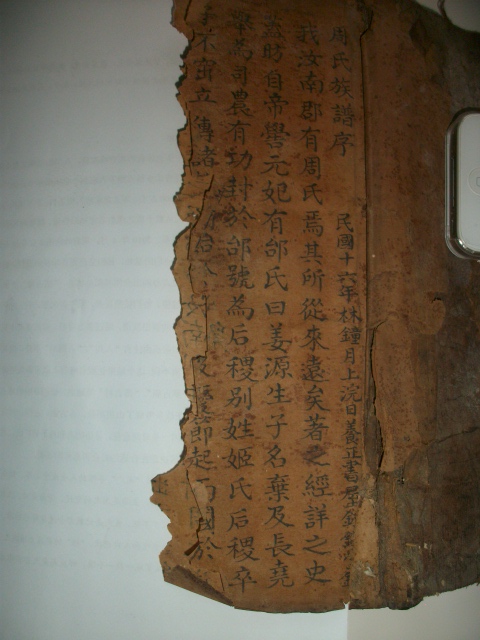 周氏族譜序
民國十六年林鐘月上浣日養正書屋
我汝南郡有周氏焉其所從來遠矣著之經詳之史
蓋昉自帝嚳元妃有邰氏曰姜源生子名棄及長堯
舉為司農有功封於邰號為后稷別姓姬氏后稷卒
子不窋立傳諸 即起而國於